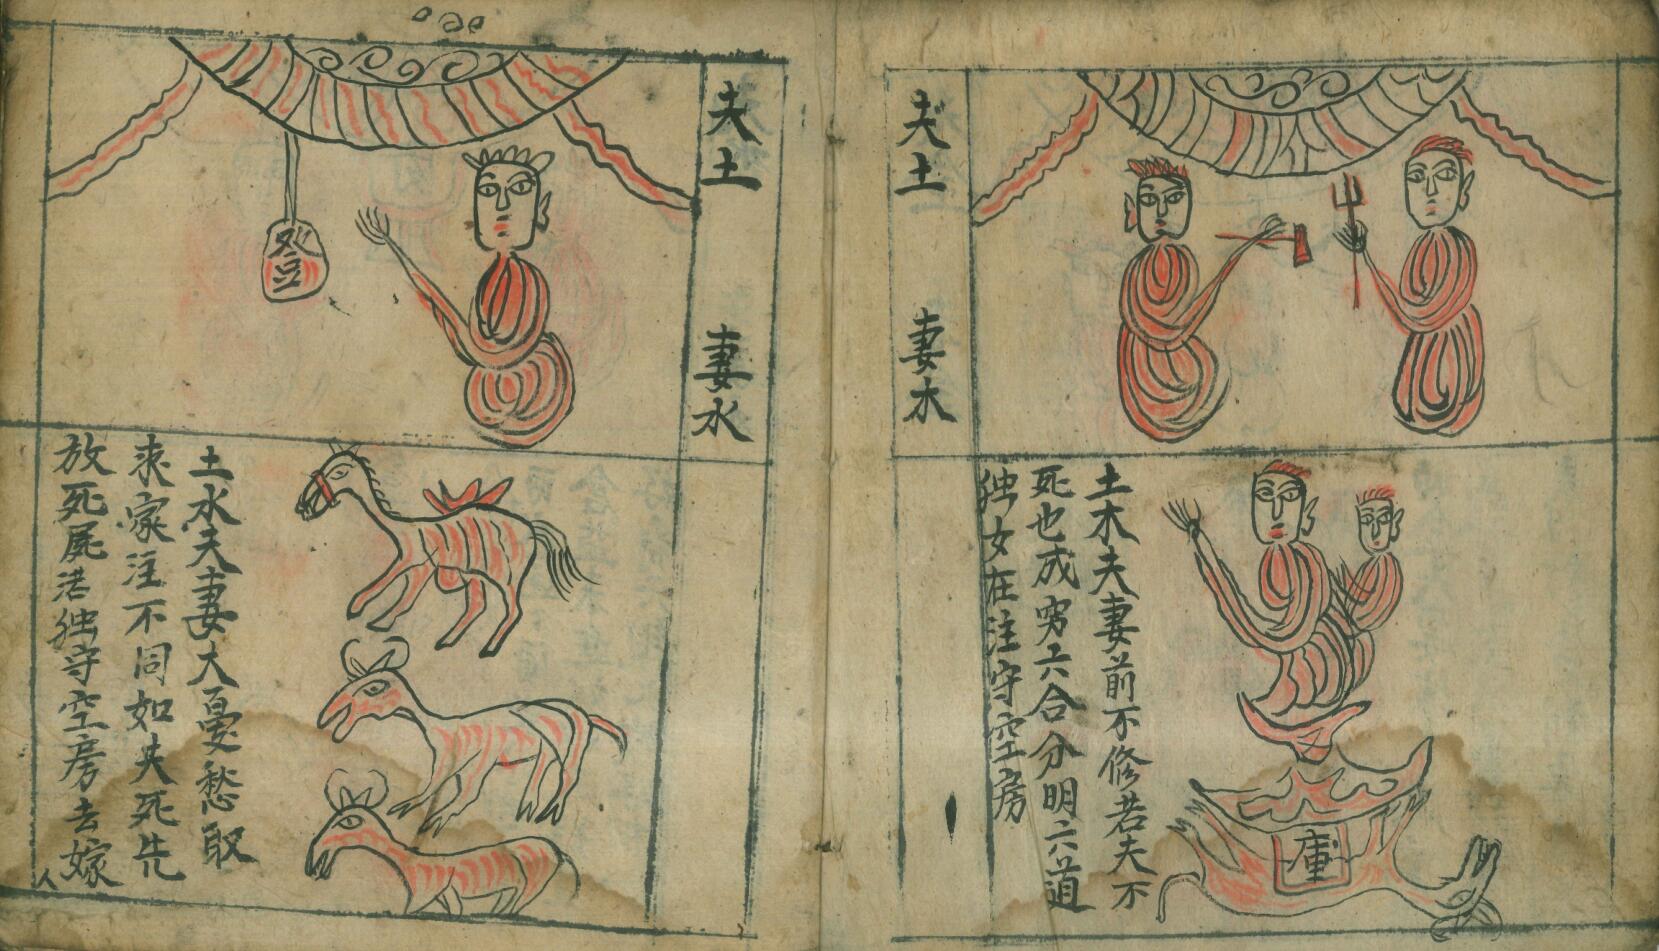 夫土 妻木
土木夫妻前不修若夫不
死也成穷六合分明六道
独女在注守空房
庫
夫土 妻水
登
土水夫妻大憂愁取
来家注不同如夫死先
放死屍洛独守空房去嫁
人